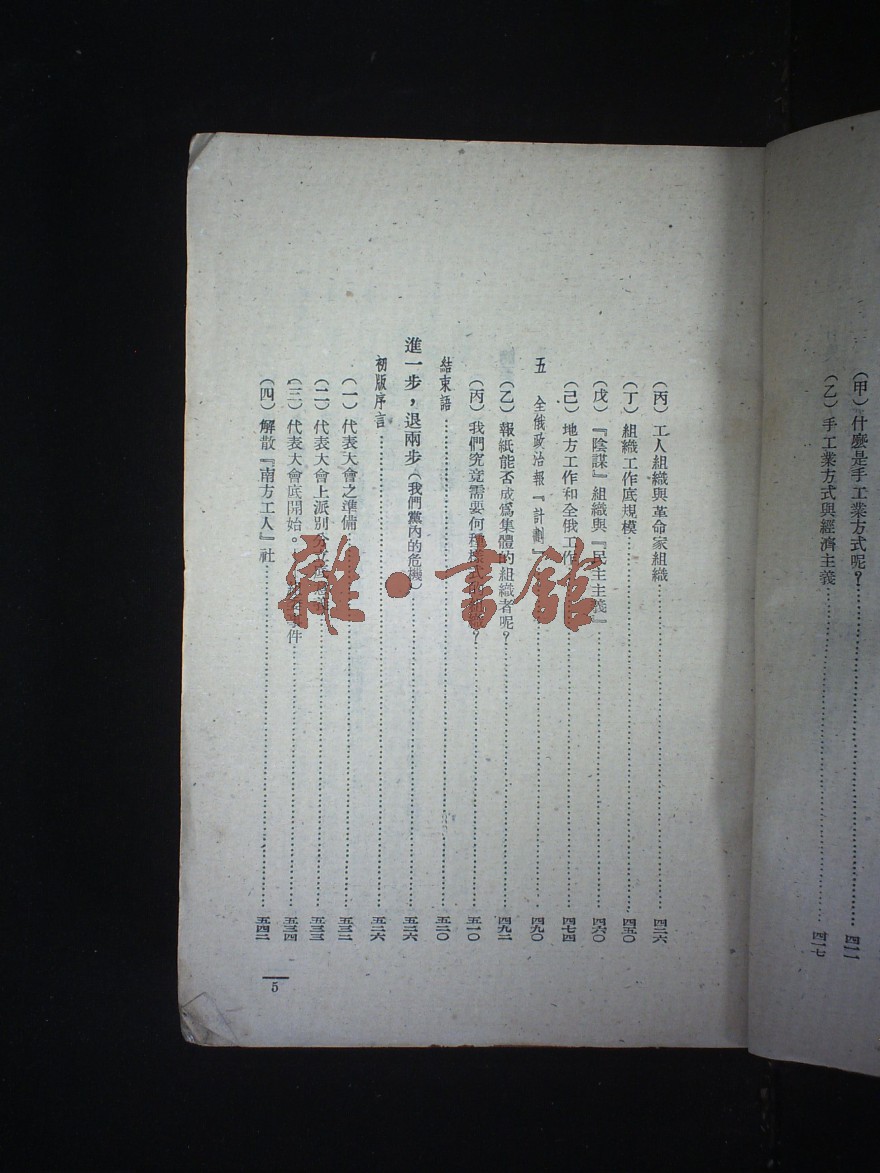 (甲)什麼是手工業方式呢?……四一一
(乙)手工業方式與經濟主義……四一七
(丙)工人組織與革命家組織……四二六
(丁)組織工作底規模……四五〇
(戊)『陰謀』組織與『民主主義』……四六〇
(己)地方工作和全俄工作……四七四
五 全俄政治報『計劃』……四九〇
(乙)報紙能否成爲集體的組織者呢?……四九二
(丙)我們究竟需要何種樣式……?……五一〇
結束語……五二〇
進一步,退兩步(我們黨內的危機)……五二六
初版序言……五二六
(一)代表大會之準備……五三二
(二)代表大會上派別分……五三三
(三)代表大會底開始。……事件……五三四
(四)解散『南方工人』社……五四二
5
雜·書館